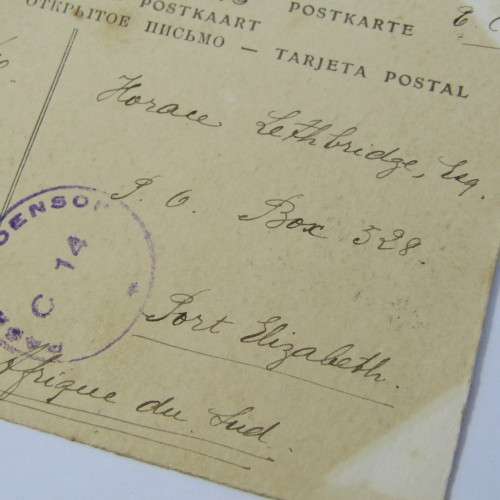 POSTKARTE
POSTKAART
ОТКРЫТОЕ ПИСЬМО — TARJETA POSTAL
Horace Lethbridge, Esq.
P. O. Box 328.
Port Elizabeth.
Afrique du Sud.
C 14